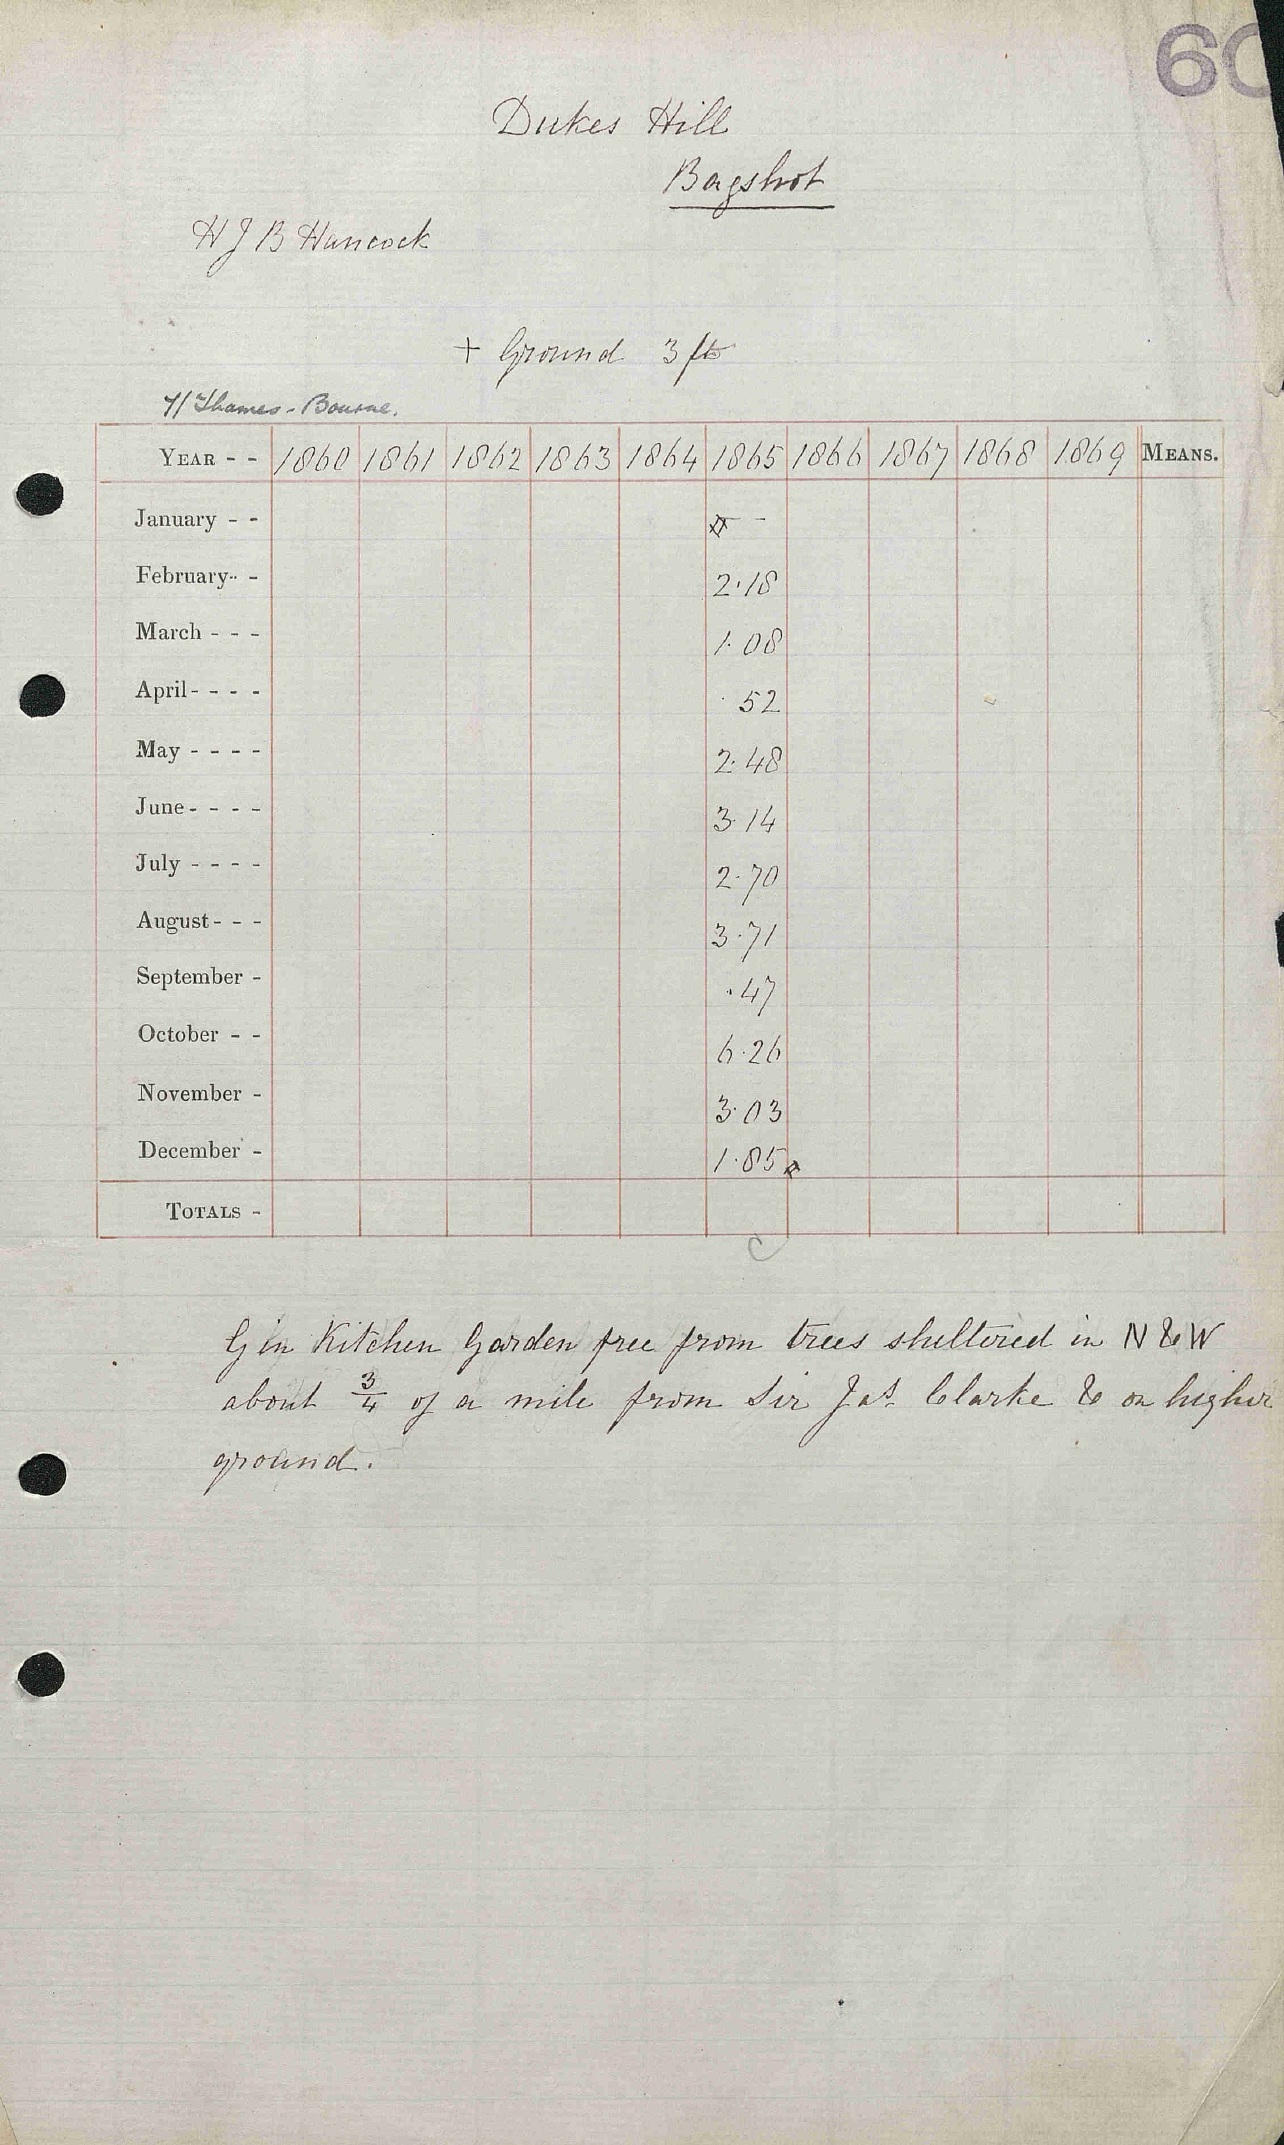 60
Dukes Hill
Bagshot
H J B Hancock
+ Ground 3 ft
7/ Thames - Bourne.
YEAR - - 1860 1861 1862 1863 1864 1865 1866 1867 1868 1869 MEANS.
January - - -
February - - 2.18
March - - - 1.08
April - - - - .52
May - - - - 2.48
June - - - - 3.14
July - - - - 2.70
August - - - 3.71
September - .47
October - - 6.26
November - 3.03
December - 1.85
TOTALS -
G in Kitchen Garden free from trees sheltered in N & W
about 3/4 of a mile from Sir Jas. Clarke & on higher
ground.